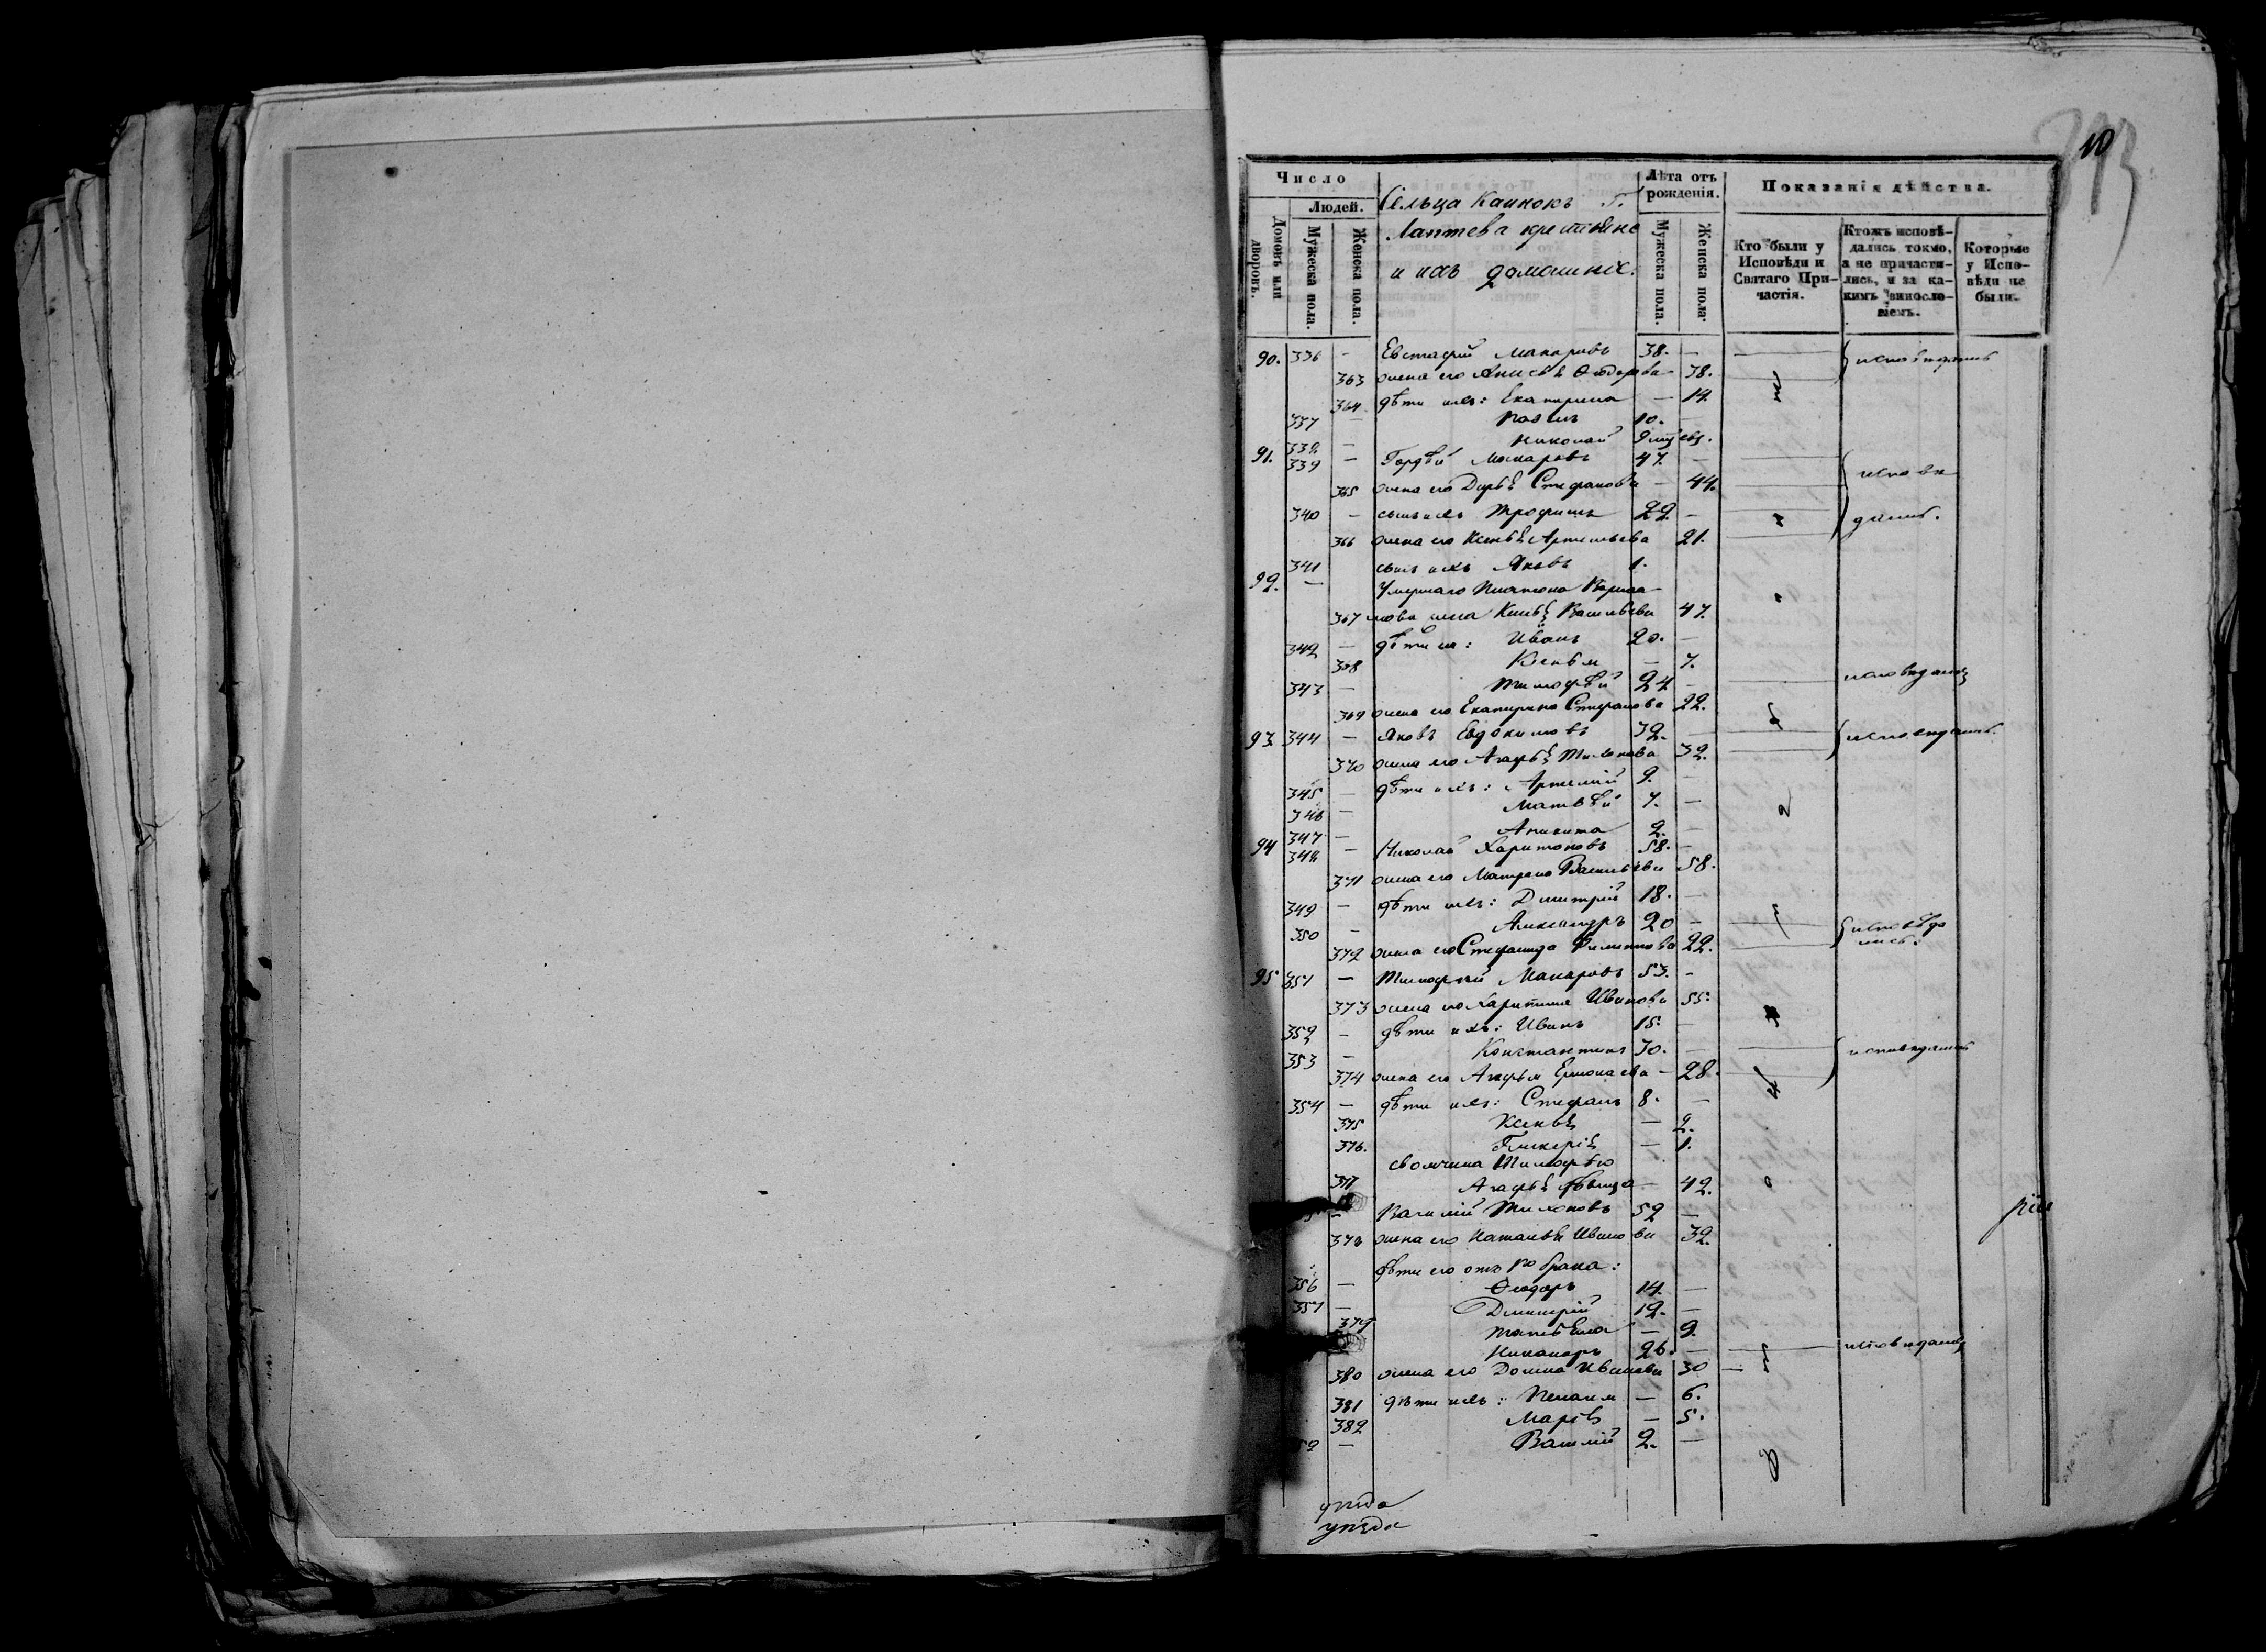 10
393
Число
Людей.
Домовъ или дворовъ.
Мужеска пола.
Женска пола.
Сельца Г.
Лаптева крестьяне
и ихъ домашніе.
Лѣта отъ рожденія.
Мужеска пола.
Женска пола.
Показанія дѣйства.
Кто были у Исповѣди и Святаго При-частія.
Ктожъ исповѣ-дались токмо, а не причасти-лись, и за ка-кимъ винносло-віемъ.
Которые у Испо-вѣди не были.
90. 336 — Евстафій Макаровъ 38. —
363 жена его Анисья Ѳедорова — 38.
364 дѣти ихъ: Екатерина — 14.
337 — Павелъ 10.
338 — Николай 9
91. 339 — Гордѣй Макаровъ 47. —
365 жена его Дарья Стефанова — 44.
340 — сынъ ихъ Трофимъ 22 —
366 жена его Ксенья Артемьева 21.
341 сынъ ихъ Яковъ 1.
92. — Умершаго Платона
367 жена Ксенья Васильева 47.
342 — дѣти ея: Иванъ 20. —
368 Ксенья — 7.
343 — Тимофѣй 24 —
369 жена его Екатерина Стефанова 22.
93. 344 — Яковъ Евдокимовъ 32. —
370 жена его Агафья Тихонова 32.
345 — дѣти ихъ: Артемій 9. —
346 — Матвѣй 7. —
347 — Аникита 2. —
94 348 — Николай Харитоновъ 58. —
371 жена его Матрена Васильева 58.
349 — дѣти ихъ: Димитрій 18. —
350 — Александръ 20 —
372 жена его Стефанида 22.
95 351 — Тимофѣй Макаровъ 53. —
373 жена его Харитина Иванова 55.
352 — дѣти ихъ: Иванъ 15. —
353 — Константинъ 30. —
374 жена его Агафья Ермолаева — 28.
354 — дѣти ихъ: Стефанъ 8. —
375 Ксенья — 2.
376. Гликерія — 1.
своячина Тимофѣю
377 Агафья дѣвица — 42.
— Василій Тихоновъ 52 —
378 жена его Наталья Иванова 32.
дѣти его отъ 1го брака:
356 — Ѳеодоръ 14. —
357 — Димитрій 12. —
379 Татьяна — 9.
Никаноръ 26. —
380 жена его Домна Иванова 30
381 дѣти ихъ: Пелагія — 6.
382 Марія — 5.
— Василій 2. —
уѣзда
уѣзда